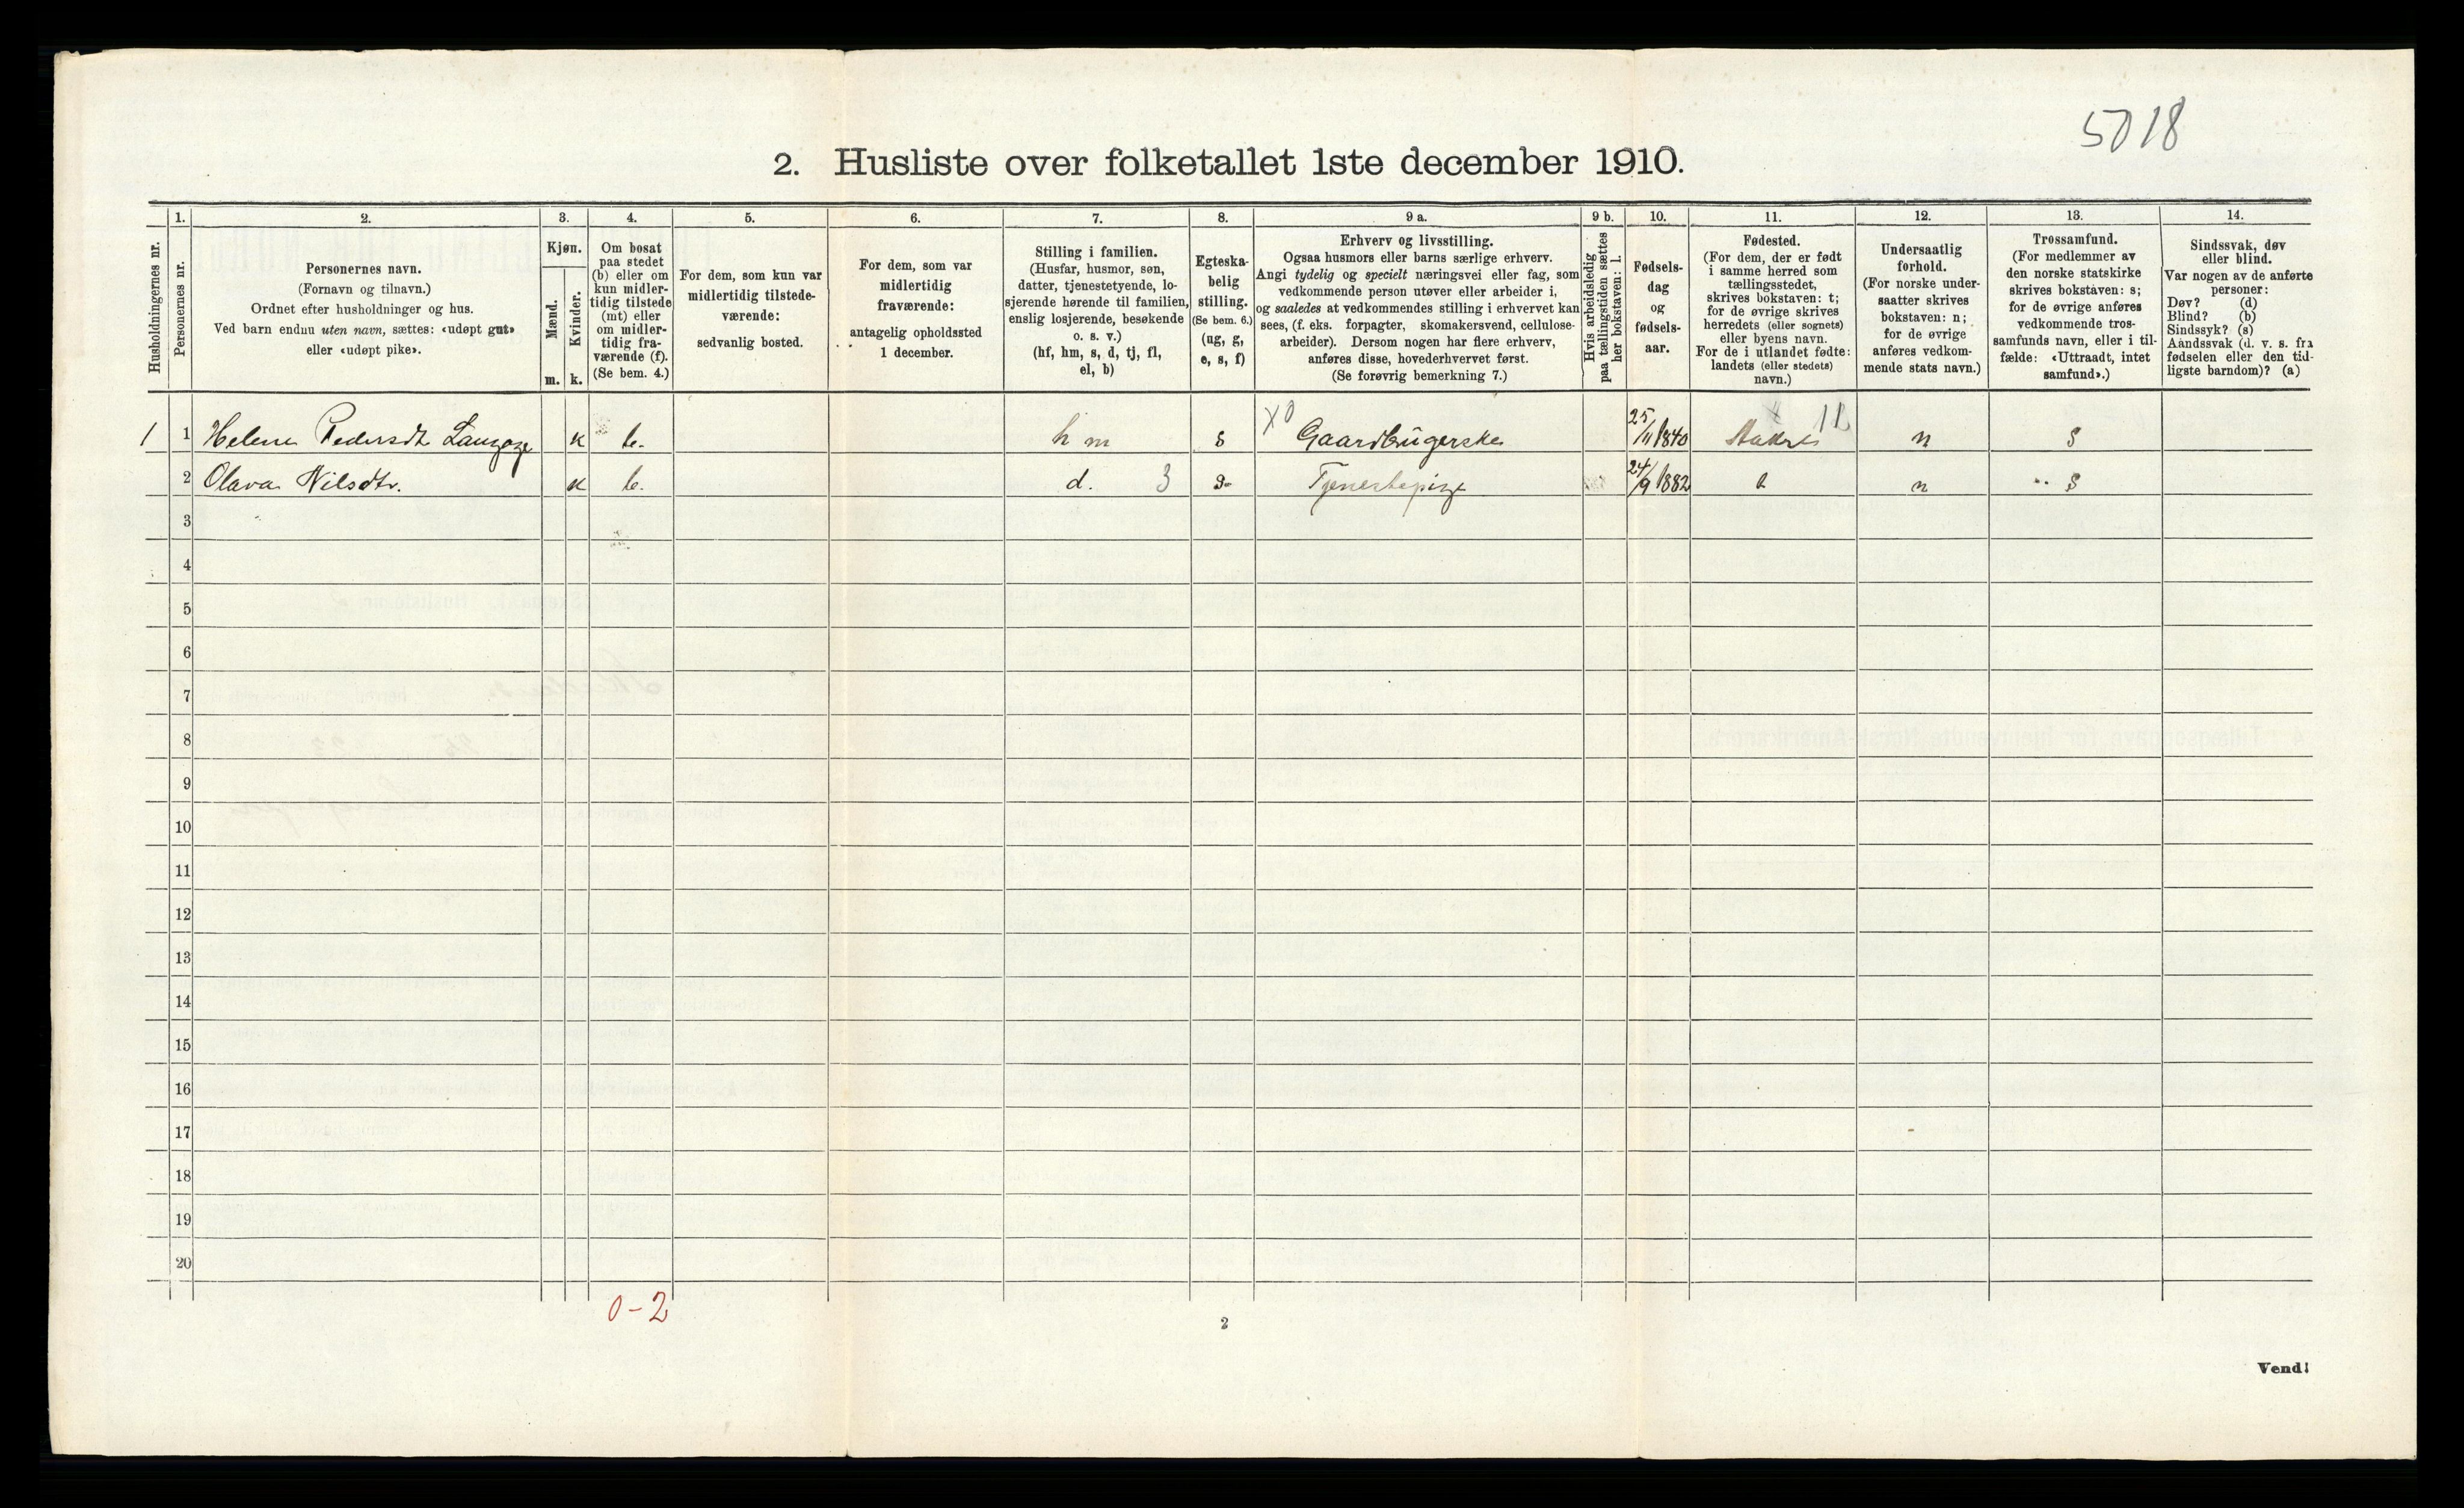 5018
2. Husliste over folketallet 1ste december 1910.
Husholdningernes nr.
1.
Personernes nr.
2.
Personernes navn.
(Fornavn og tilnavn.)
Ordnet efter husholdninger og hus.
Ved barn endnu uten navn, sættes: «udøpt gut»
eller «udøpt pike».
3.
Kjøn.
Mænd.
Kvinder.
m. k.
4.
Om bosat
paa stedet
(b) eller om
kun midler-
tidig tilstede
(mt) eller
om midler-
tidig fra-
værende (f).
(Se bem. 4.)
5.
For dem, som kun var
midlertidig tilstede-
værende:
sedvanlig bosted.
6.
For dem, som var
midlertidig
fraværende:
antagelig opholdssted
1 december.
7.
Stilling i familien.
(Husfar, husmor, søn,
datter, tjenestetyende, lo-
sjerende hørende til familien,
enslig losjerende, besøkende
o. s. v.)
(hf, hm, s, d, tj, fl,
el, b)
8.
Egteska-
belig
stilling.
(Se bem. 6.)
(ug, g,
e, s, f)
9 a.
Erhverv og livsstilling.
Ogsaa husmors eller barns særlige erhverv.
Angi tydelig og specielt næringsvei eller fag, som
vedkommende person utøver eller arbeider i,
og saaledes at vedkommendes stilling i erhvervet kan
sees, (f. eks. forpagter, skomakersvend, cellulose-
arbeider). Dersom nogen har flere erhverv,
anføres disse, hovederhvervet først.
(Se forøvrig bemerkning 7.)
9 b.
Hvis arbeidsledig
paa tællingstiden sættes
her bokstaven: l.
10.
Fødsels-
dag
og
fødsels-
aar.
11.
Fødested.
(For dem, der er født
i samme herred som
tællingsstedet,
skrives bokstaven: t;
for de øvrige skrives
herredets (eller sognets)
eller byens navn.
For de i utlandet fødte:
landets (eller stedets)
navn.)
12.
Undersaatlig
forhold.
(For norske under-
saatter skrives
bokstaven: n;
for de øvrige
anføres vedkom-
mende stats navn.)
13.
Trossamfund.
(For medlemmer av
den norske statskirke
skrives bokstaven: s;
for de øvrige anføres
vedkommende tros-
samfunds navn, eller i til-
fælde: «Uttraadt, intet
samfund».)
14.
Sindssvak, døv
eller blind.
Var nogen av de anførte
personer:
Døv? (d)
Blind? (b)
Sindssyk? (s)
Aandssvak (d. v. s. fra
fødselen eller den tid-
ligste barndom)? (a)
1 1 Helene Pedersdt k b. h m s X0 Gaardbrugerske 25/11 1840 n s
2 Olava Nilsdtr. k b. d. 3 Tjenestepige 24/9 1882 n s
3
4
5
6
7
8
9
10
11
12
13
14
15
16
17
18
19
20
0-2
2
Vend!